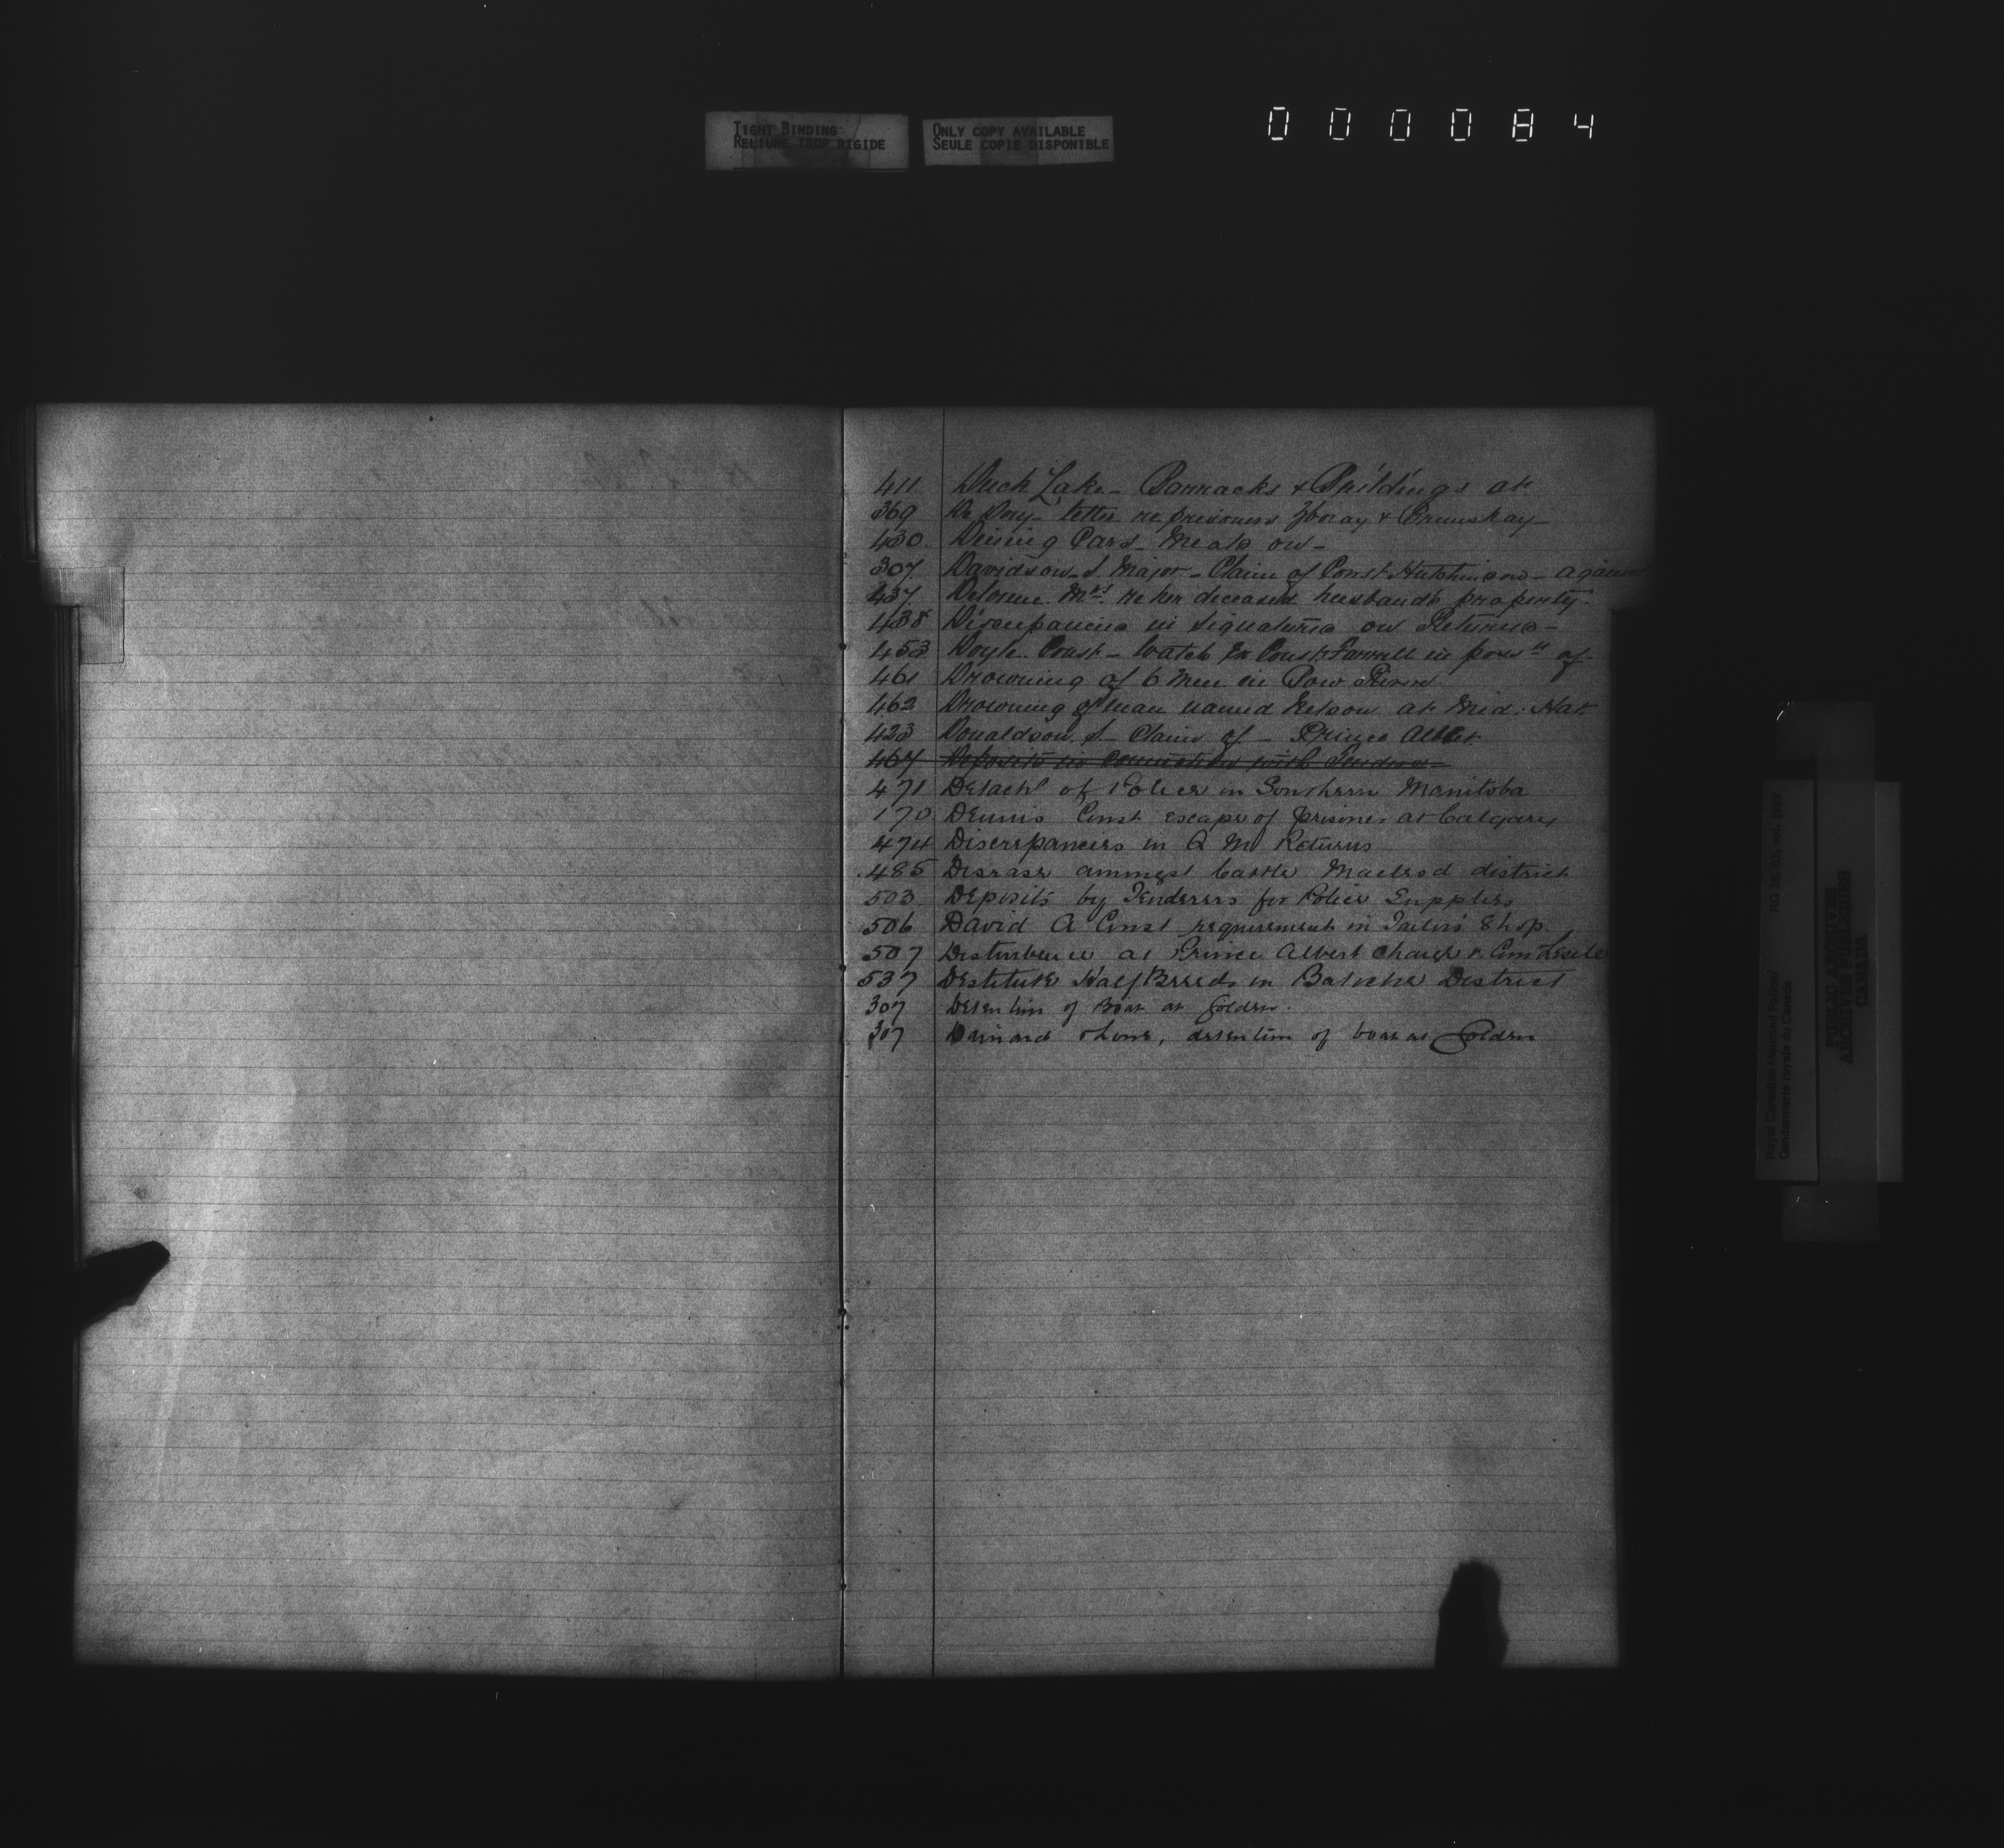 TIGHT BINDING
RELIURE TROP RIGIDE
ONLY COPY AVAILABLE
SEULE COPIE DISPONIBLE
000084
411 Duck Lake - Barracks & Buildings at
369 letter re prisoners &
430 Dining Cars - Meals on -
307 Davidson - S. Major - Claim of Const Hutchinson - against
437 Delorme Mrs. re her deceased husbands property.
438 Discrepancies in signatures on Returns -
453 Doyle Const - Watch Ex Const Farrell in possn of.
461 Drowning of 6 men in Bow River
462 Drowning of man named Nelson at Med. Hat.
423 Donaldson. S - Claim of - Prince Albert
467 Deposits in connection with Tenders -
471 Detacht of Police in Southern Manitoba
170 Dennis Const escape of prisoner at Calgary
474 Discrepancies in Q M Returns
485 Disease amongst Cattle Macleod district
503 Deposits by Tenderers for Police Supplies
506 David A Const requirement in Tailors Shop.
507 Disturbance at Prince Albert Charge v. Const
537 Destitute Half Breeds in Batoche District
307 Detention of Boat at Golden.
307 detention of boat at Golden
Royal Canadian Mounted Police/
Gendarmerie royale du Canada
PUBLIC ARCHIVES
ARCHIVES PUBLIQUES
CANADA